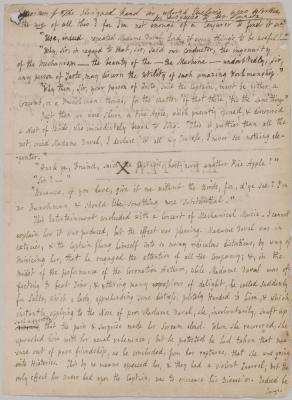 the use of all this? for I'm not
"Use, indeed, repeated Madame Duval, Lord, if every thing's to be useful!"—
"Why, Sir, as to that, Sir, said our Conductor, the ingenuity
of the mechanism—the beauty of the—the Machine—undoubtedly, Sir,
any person of Taste may discern the utility of such amazing Workmanship."
"Why then, Sir, your person of Taste, said the Captain, must be either a
Coxcomb, or a Frenchman; though, for the matter of that there, 'tis the same thing."
Just then we were shewn a Pine Apple, which presently opened, & discovered
a Nest of Birds, who immediately began to Sing. "This is prettier than all the
rest, cried Madame Duval, I declare, in all my Travels, I never see nothing ele-
ganter."
"Hark ye, Friend, said the Captain, hast never another Pine Apple?"—
"Sir?—"
"Because, if you have, give it us without the Birds, for, d'ye see? I'm
no Frenchman, & should like something more Substantial."—
This Entertainment concluded with a Concert of Mechanical Music. I cannot
explain how it was produced, but the effect was pleasing. Madame Duval was in
extacies, & the Captain flung himself into so many ridiculous distortions, by way of
mimicking her, that he engaged the attention of all the Company; &, in the
midst of the performance of the Coronation Anthem, while Madame Duval was af-
fecting to beat Time, & uttering many expressions of delight, he called suddenly
for Salts, which a lady, apprehending some distress, politely handed to him, & which,
instantly applying to the Nose of poor Madame Duval, she, involuntarily, snuft up
that the pain & surprise made her Scream aloud. When she recovered, she
upraided him with her usual vehemence; but he protested he had taken that mea-
sure out of pure Friendship, as he concluded, from her raptures, that she was going
into Histerics. This by no means appeased her, & they had a violent Quarrel; but the
only effect her anger had upon the Captain, was to increase his Diversion. Indeed he